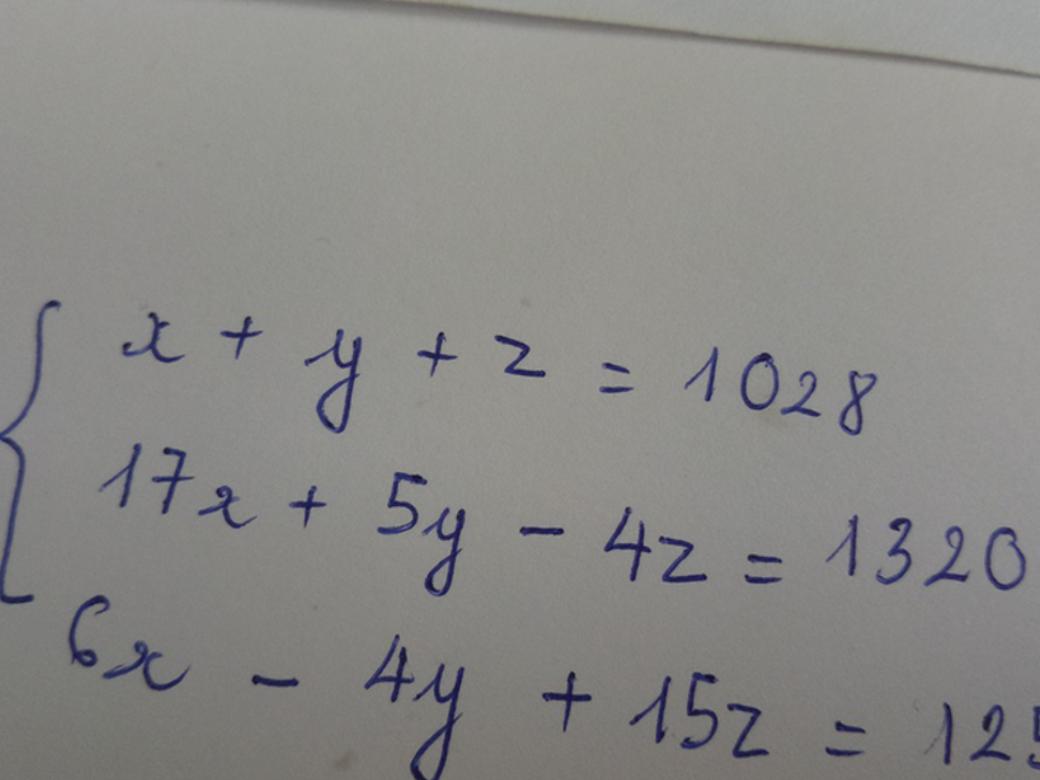 x + y + z = 1028
17x + 5y - 4z = 1320
6x - 4y + 15z =